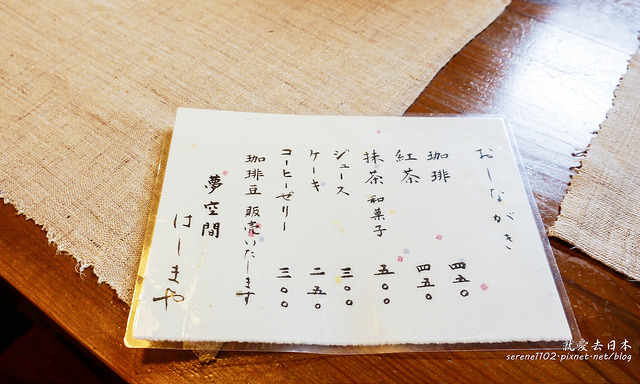 おしながき
珈琲 四五〇
紅茶 四五〇
抹茶 和菓子 五〇〇
ジュース 三〇〇
ケーキ 二五〇
コーヒーゼリー 三〇〇
珈琲豆 販売いたします
夢空間
はしまや
就愛去日本
serene1102.pixnet.net/blog